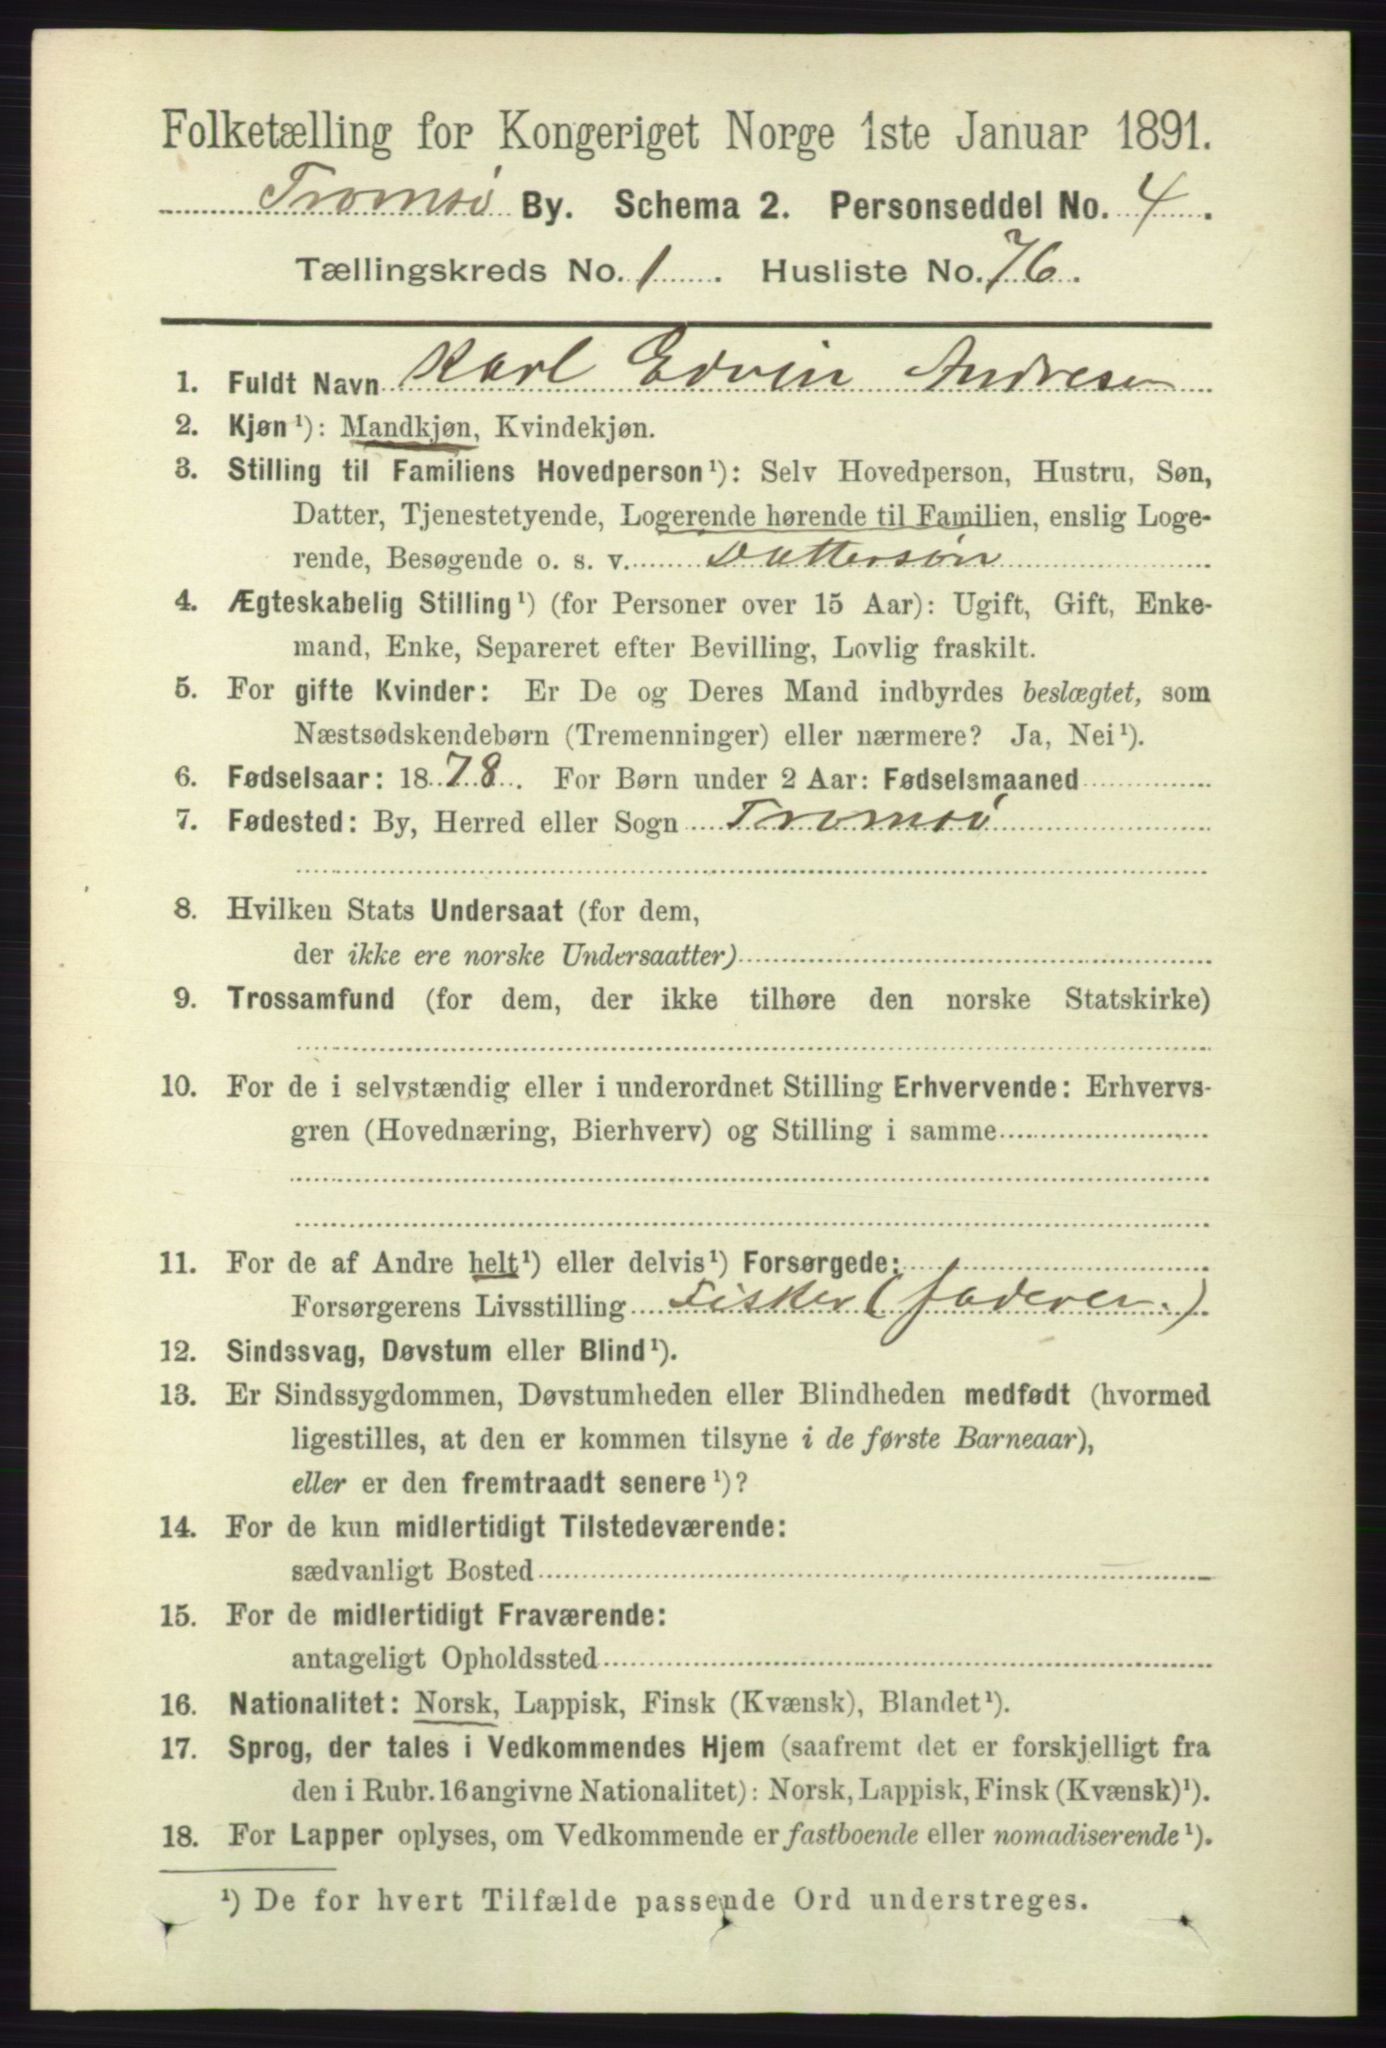 Folketælling for Kongeriget Norge 1ste Januar 1891.
Tromsø By. Schema 2. Personseddel No. 4.
Tællingskreds No. 1. Husliste No. 76.
1. Fuldt Navn Karl Edvin Andresen
2. Kjøn¹): Mandkjøn, Kvindekjøn.
3. Stilling til Familiens Hovedperson¹): Selv Hovedperson, Hustru, Søn,
Datter, Tjenestetyende, Logerende hørende til Familien, enslig Loge-
rende, Besøgende o. s. v. Dattersøn
4. Ægteskabelig Stilling¹) (for Personer over 15 Aar): Ugift, Gift, Enke-
mand, Enke, Separeret efter Bevilling, Lovlig fraskilt.
5. For gifte Kvinder: Er De og Deres Mand indbyrdes beslægtet, som
Næstsødskendebørn (Tremenninger) eller nærmere? Ja, Nei¹).
6. Fødselsaar: 1878. For Børn under 2 Aar: Fødselsmaaned
7. Fødested: By, Herred eller Sogn Tromsø
8. Hvilken Stats Undersaat (for dem,
der ikke ere norske Undersaatter)
9. Trossamfund (for dem, der ikke tilhøre den norske Statskirke)
10. For de i selvstændig eller i underordnet Stilling Erhvervende: Erhvervs-
gren (Hovednæring, Bierhverv) og Stilling i samme
11. For de af Andre helt¹) eller delvis¹) Forsørgede:
Forsørgerens Livsstilling Fisker (faderen.)
12. Sindssvag, Døvstum eller Blind¹).
13. Er Sindssygdommen, Døvstumheden eller Blindheden medfødt (hvormed
ligestilles, at den er kommen tilsyne i de første Barneaar),
eller er den fremtraadt senere¹)?
14. For de kun midlertidigt Tilstedeværende:
sædvanligt Bosted
15. For de midlertidigt Fraværende:
antageligt Opholdssted
16. Nationalitet: Norsk, Lappisk, Finsk (Kvænsk), Blandet¹).
17. Sprog, der tales i Vedkommendes Hjem (saafremt det er forskjelligt fra
den i Rubr. 16 angivne Nationalitet): Norsk, Lappisk, Finsk (Kvænsk)¹).
18. For Lapper oplyses, om Vedkommende er fastboende eller nomadiserende¹).
¹) De for hvert Tilfælde passende Ord understreges.